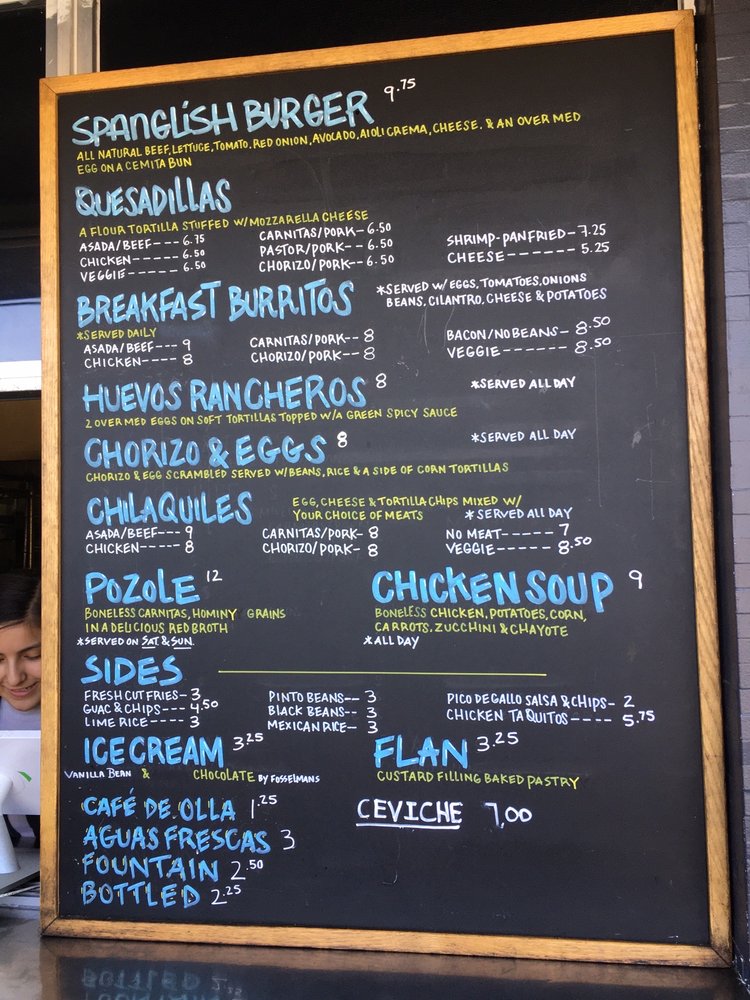 SPANGLISH BURGER 9.75
ALL NATURAL BEEF, LETTUCE, TOMATO, RED ONION, AVOCADO, AIOLI CREMA, CHEESE. & AN OVER MED
EGG ON A CEMITA BUN
QUESADILLAS
A FLOUR TORTILLA STUFFED W/MOZZARELLA CHEESE
ASADA/BEEF--- 6.75 CARNITAS/PORK- 6.50 SHRIMP-PANFRIED- 7.25
CHICKEN------ 6.50 PASTOR/PORK-- 6.50 CHEESE------- 5.25
VEGGIE------ 6.50 CHORIZO/PORK-- 6.50
BREAKFAST BURRITOS *SERVED W/EGGS, TOMATOES, ONIONS
BEANS, CILANTRO, CHEESE & POTATOES
*SERVED DAILY
ASADA/BEEF--- 9 CARNITAS/PORK-- 8 BACON/NO BEANS- 8.50
CHICKEN----- 8 CHORIZO/PORK-- 8 VEGGIE------- 8.50
HUEVOS RANCHEROS 8 *SERVED ALL DAY
2 OVER MED EGGS ON SOFT TORTILLAS TOPPED W/A GREEN SPICY SAUCE
CHORIZO & EGGS 8 *SERVED ALL DAY
CHORIZO & EGG SCRAMBLED SERVED W/BEANS, RICE & A SIDE OF CORN TORTILLAS
CHILAQUILES EGG, CHEESE & TORTILLA CHIPS MIXED W/
YOUR CHOICE OF MEATS *SERVED ALL DAY
ASADA/BEEF--- 9 CARNITAS/PORK- 8 NO MEAT----- 7
CHICKEN----- 8 CHORIZO/PORK- 8 VEGGIE------ 8.50
POZOLE 12 CHICKEN SOUP 9
BONELESS CARNITAS, HOMINY GRAINS BONELESS CHICKEN, POTATOES, CORN,
IN A DELICIOUS RED BROTH CARROTS, ZUCCHINI & CHAYOTE
*SERVED ON SAT & SUN. *ALL DAY
SIDES
FRESH CUT FRIES- 3 PINTO BEANS-- 3 PICO DE GALLO SALSA & CHIPS- 2
GUAC & CHIPS--- 4.50 BLACK BEANS-- 3 CHICKEN TAQUITOS---- 5.75
LIME RICE---- 3 MEXICAN RICE- 3
ICE CREAM 3.25 FLAN 3.25
VANILLA BEAN & CHOCOLATE BY FOSSELMANS CUSTARD FILLING BAKED PASTRY
CAFÉ DE OLLA 1.25 CEVICHE 7,00
AGUAS FRESCAS 3
FOUNTAIN 2.50
BOTTLED 2.25